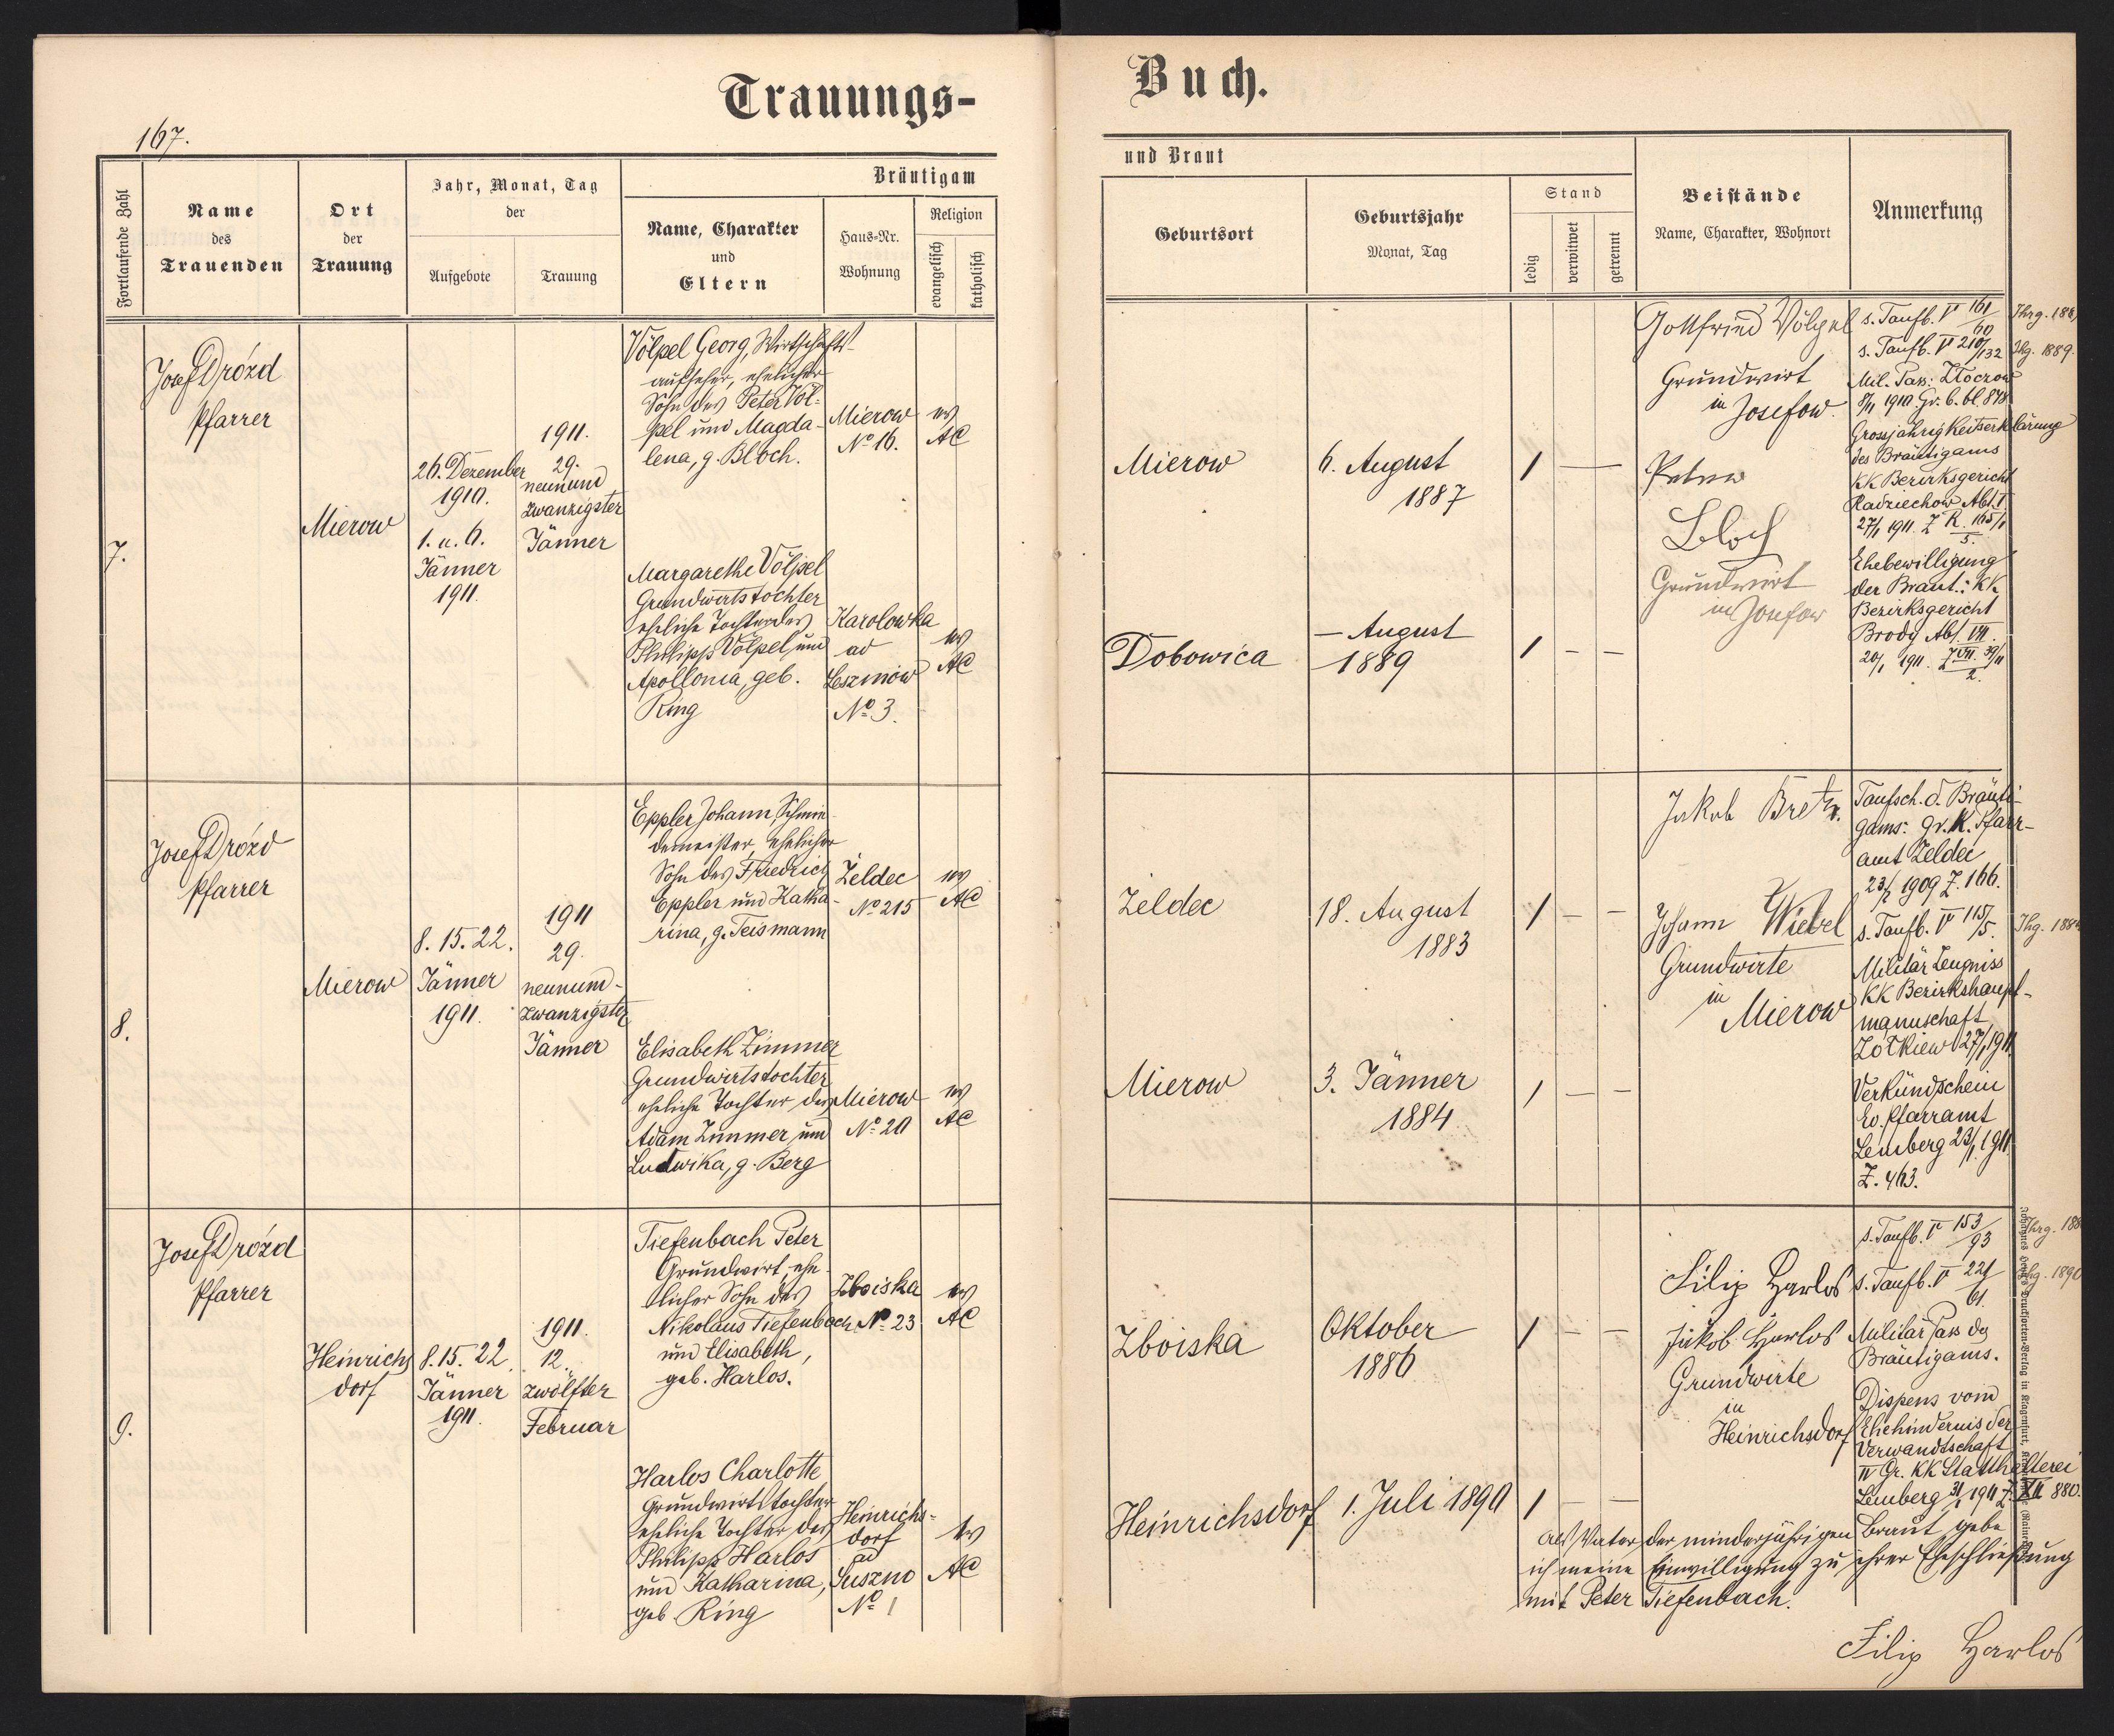 Trauungs-
Buch.
167.
Fortlaufende Zahl
Name
des
Trauenden
Ort
der
Trauung
Jahr, Monat, Tag
der
Aufgebote
Trauung
Bräutigam
Name, Charakter
und
Eltern
Haus-Nr.
Wohnung
Religion
evangelisch
katholisch
und Braut
Geburtsort
Geburtsjahr
Monat, Tag
Stand
ledig
verwitwet
getrennt
Beistände
Name, Charakter, Wohnort
Anmerkung
7.
Josef Drózd
Pfarrer
Mierow
26. Dezember
1910.
1. u. 6.
Jänner
1911.
1911.
29.
neunund
zwanzigster
Jänner
Völpel Georg, Wirtschafts-
aufseher, ehelicher
Sohn des Peter Völ-
pel und Magda-
lena, g. Bloch.
Mierow
No 16.
ev
AC
Margarethe Völpel
Grundwirtstochter
eheliche Tochter des
Philipp Völpel und
Apollonia, geb.
Ring
Karolowka
ad
Leszniow
No 3.
ev
AC
Mierow
6. August
1887
1 —
Dobowica
— August
1889
1 – –
Gottfried Völpel
Grundwirt
in Josefow.
Peter
Bloch
Grundwirt
in Josefow
s. Taufb. V 161/60
s. Taufb. V 210/132
Jhg. 1889.
Mil. Pass: Złoczow
8/11 1910 Gr. b. bl. 878
Grossjährigkeitserklärung
des Bräutigams
KK Bezirksgericht
Radziechow Abt. I
27/1 1911. Z
Ehebewilligung
der Braut: KK
Bezirksgericht
Brody Abt. VII.
20/1 1911. Z VII. 39/11
2.
8.
Josef Drózd
Pfarrer
Mierow
8. 15. 22.
Jänner
1911.
1911
29.
neunund-
zwanzigster
Jänner
Eppler Johann, Schmie-
demeister, ehelicher
Sohn des Friedrich
Eppler und Katha-
rina, g. Teismann
Zeldec
No 215
ev
AC
Elisabeth Zimmer
Grundwirtstochter
eheliche Tochter des
Adam Zimmer und
Ludwika, g. Berg
Mierow
No 20
ev
AC
Zeldec
18. August
1883
1 – –
Mierow
3. Jänner
1884
1 – –
Jakob Bretz.
Johann Wiebel
Grundwirte
in
Mierow
Taufsch. d. Bräuti-
gams: gr. K. Pfarr-
amt Zeldec
1909 Z. 166.
s. Taufb. V 115/5.
Militär Zeugniss
KK Bezirkshaupt-
mannschaft
Zołkiew 27/1 1911.
Verkündschein
Ev. Pfarramt
Lemberg 23/1. 1911.
Z. 463.
9.
Josef Drózd
Pfarrer
Heinrichs
dorf
8. 15. 22.
Jänner
1911.
1911.
12.
zwölfter
Februar
Tiefenbach Peter
Grundwirt, ehe-
licher Sohn des
Nikolaus Tiefenbach
und Elisabeth,
geb. Harlos.
Zboiska
No 23
ev
AC
Harlos Charlotte
Grundwirtstochter
eheliche Tochter des
Philipp Harlos
und Katharina,
geb. Ring
Heinrichs-
dorf
ad
Suszno
No 1
ev
AC
Zboiska
Oktober
1886
1 – –
Heinrichsdorf
1. Juli 1890
1 – –
Filip Harlos
Jakob Harlos
Grundwirte
in
Heinrichsdorf
s. Taufb. V 153/93
s. Taufb. V 221/61.
Jhg. 1890
Militär Pass des
Bräutigams.
Dispens vom
Ehehindernis der
Verwandtschaft
IV Gr. KK Statthalterei
Lemberg 31/1 1911 Z. XII 880.
Als Vater der minderjährigen Braut gebe
ich meine Einwilligung zu ihrer Eheschließung
mit Peter Tiefenbach.
Filip Harlos